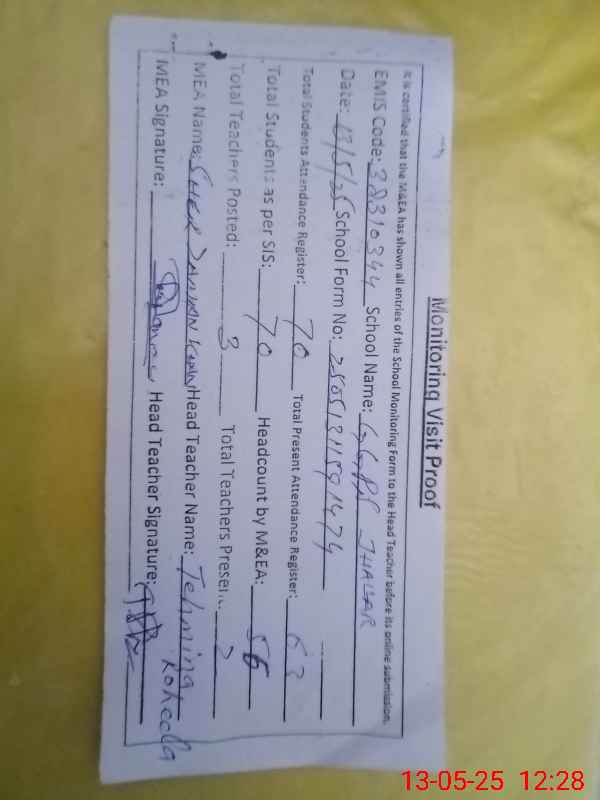 Monitoring Visit Proof
It is certified that the M&EA has shown all entries of the School Monitoring Form to the Head Teacher before its online submission.
EMIS Code: 38310344 School Name: GGPS JHALAR
Date: 13/5/25 School Form No: 25051311591474
Total Students Attendance Register: 70 Total Present Attendance Register: 62
Total Students as per SIS: 70 Headcount by M&EA: 56
Total Teachers Posted: 3 Total Teachers Present: 2
MEA Name: SHER ZAMAN KHAN Head Teacher Name: Tehmina
MEA Signature: Head Teacher Signature:
13-05-25 12:28